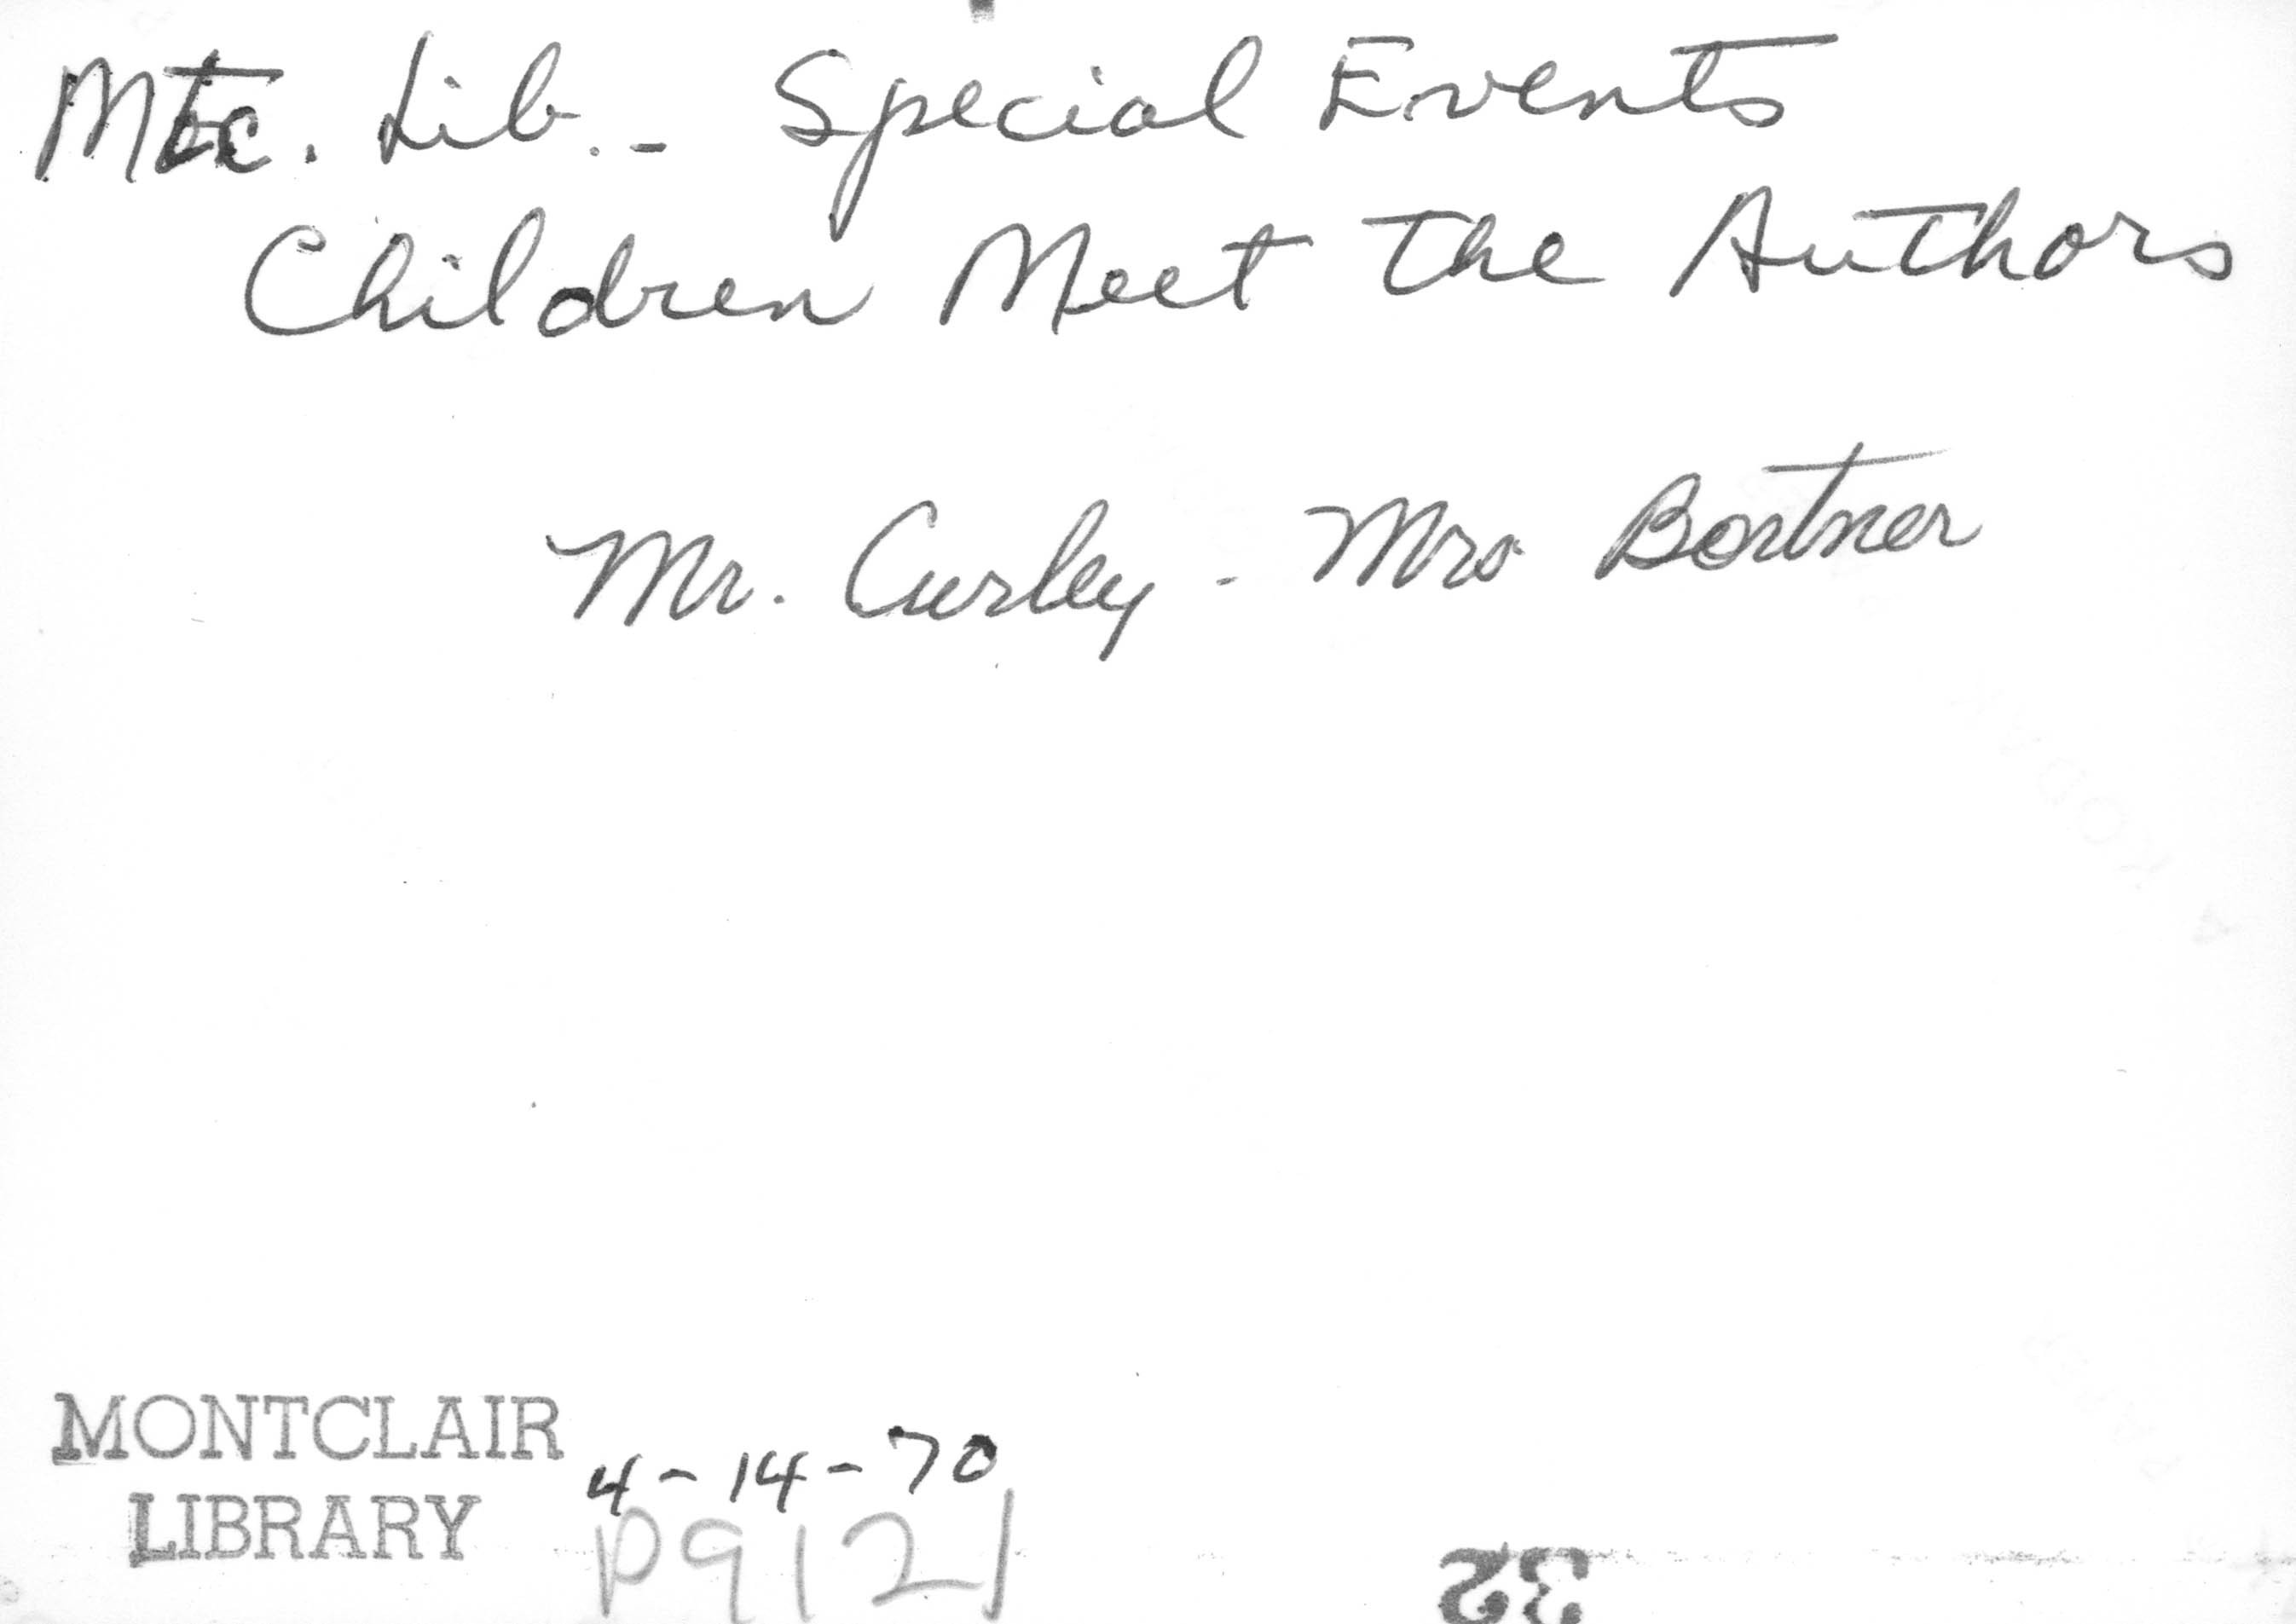 Mtc. Lib. - Special Events
Children Meet the Authors
Mr. Curley - Mrs Bortner
MONTCLAIR
LIBRARY
4-14-70
P9121
32